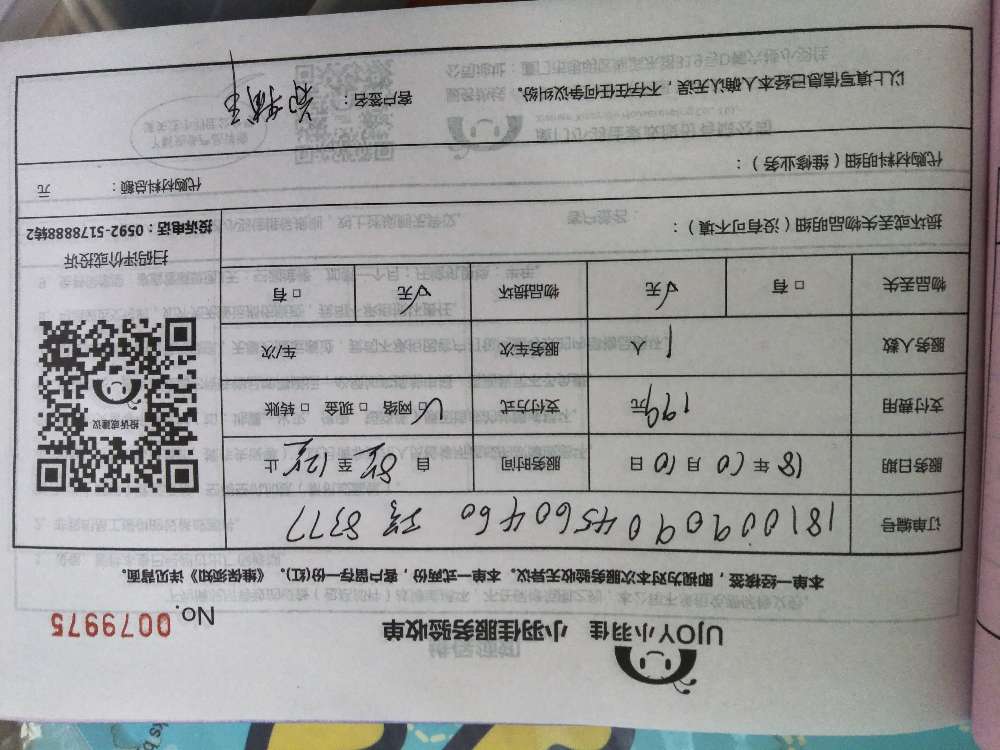 UJOY小羽佳 小羽佳服务验收单
No. 0079975
本单一经核签，即视为对本次服务验收无异议。本单一式两份，客户留存一份(红)。《维保须知》详见背面。
订单编号 1810090904560460
服务日期 18 年 10 月 10 日 服务时间 自 8 至 12 止
支付费用 199 元 支付方式 □ 网络 □ 现金 □ 转账
服务人数 1 人 服务车次 车/次
物品丢失 □ 有 无 物品损坏 无 □ 有
投诉或建议
扫码评价或投诉
投诉电话：0592-5178888转2
损坏或丢失物品明细（没有可不填）：
代购材料明细（维修业务）：
代购材料总额： 元
以上填写信息已经本人确认无误，不存在任何争议纠纷。 客户签名：